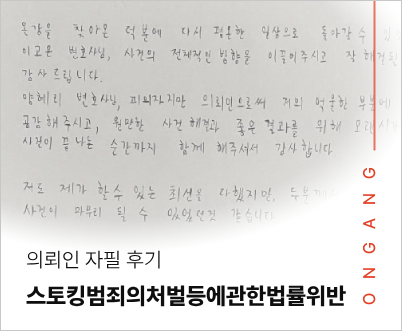 온강을 찾아온 덕분에 다시 평온한 일상으로 돌아갈 수 있
이고은 변호사님, 사건의 전체적인 방향을 이끌어주시고 잘 해결될
감사드립니다.
양혜리 변호사님, 피의자지만 의뢰인으로써 저의 억울한 부분에
공감해주시고, 원만한 사건 해결과 좋은 결과를 위해 오랜시간
사건이 끝나는 순간까지 함께 해주셔서 감사합니다.
저도 제가 할 수 있는 최선을 다했지만, 두분
사건이 마무리 될 수 있었던것 같습니다
의뢰인 자필 후기
스토킹범죄의처벌등에관한법률위반
ONGANG